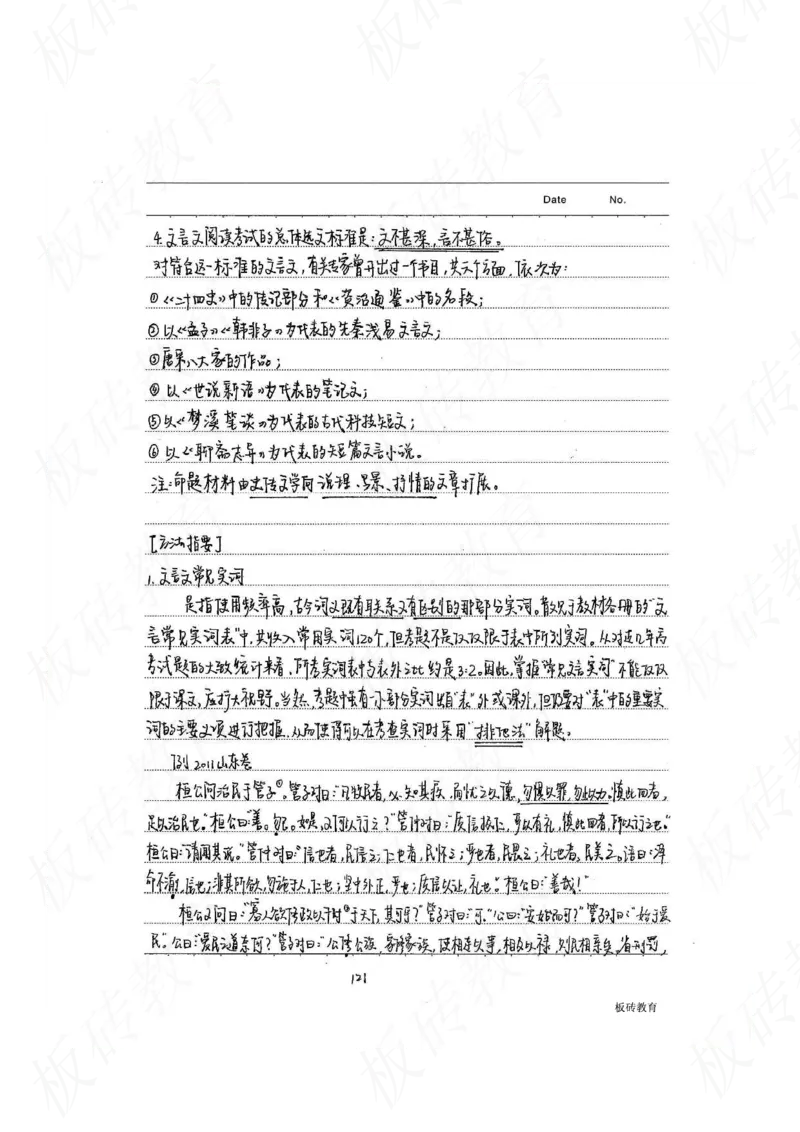 Date No.
4.文言文阅读考试的总体选文标准是：文不甚深，言不甚俗。
对符合这一标准的文言文，有关专家曾开出过一个书目，共六个方面，依次为：
①《二十四史》中的传记部分和《资治通鉴》中的名段；
②以《孟子》《韩非子》为代表的先秦浅易文言文；
③唐宋八大家的作品；
④以《世说新语》为代表的笔记文；
⑤以《梦溪笔谈》为代表的古代科技短文；
⑥以《聊斋志异》为代表的短篇文言小说。
注：命题材料由史传文学向说理、写景、抒情的文章扩展。
[方法指要]
1.文言文常见实词
是指使用频率高，古今词义既有联系又有区别的那部分实词。散见于教材各册的"文
言常见实词表"中，共收入常用实词120个，但考题不是仅仅限于表中所列实词。从对近几年高
考试题的大致统计来看，所考实词表中与表外之比约是3:2。因此，掌握"常见文言实词"不能仅仅
限于课文，应扩大视野。当然，考题中虽有一小部分实词出自"表"外或课外，但仍要对"表"中的重要实
词的主要义项进行把握，从而使得可以在考查实词时采用"排他法"解题。
例 2011山东卷
桓公问治民于管子①。管子对曰："凡牧民者，必知其疾，而忧之以德，勿惧以罪，勿止以力。慎此四者，
足以治民也。"桓公曰："善。勿已，如是，又何以行之？"管仲对曰："质信极仁，严以有礼，慎此四者，所以行之也。"
桓公曰："请闻其说。"管仲对曰："信也者，民信之；仁也者，民怀之；严也者，民畏之；礼也者，民美之。语曰：泽
命不渝，信也；非其所欲，勿施于人，仁也；坚中外正，严也；质信以让，礼也。"桓公曰："善哉！"
桓公又问曰："寡人欲修政以干时于天下，其可乎？"管子对曰："可。"公曰："安始而可？"管子对曰："始于爱
民。"公曰："爱民之道奈何？"管子对曰："公修公族，家修家族，使相连以事，相及以禄，则民相亲矣。省刑罚，
121
板砖教育